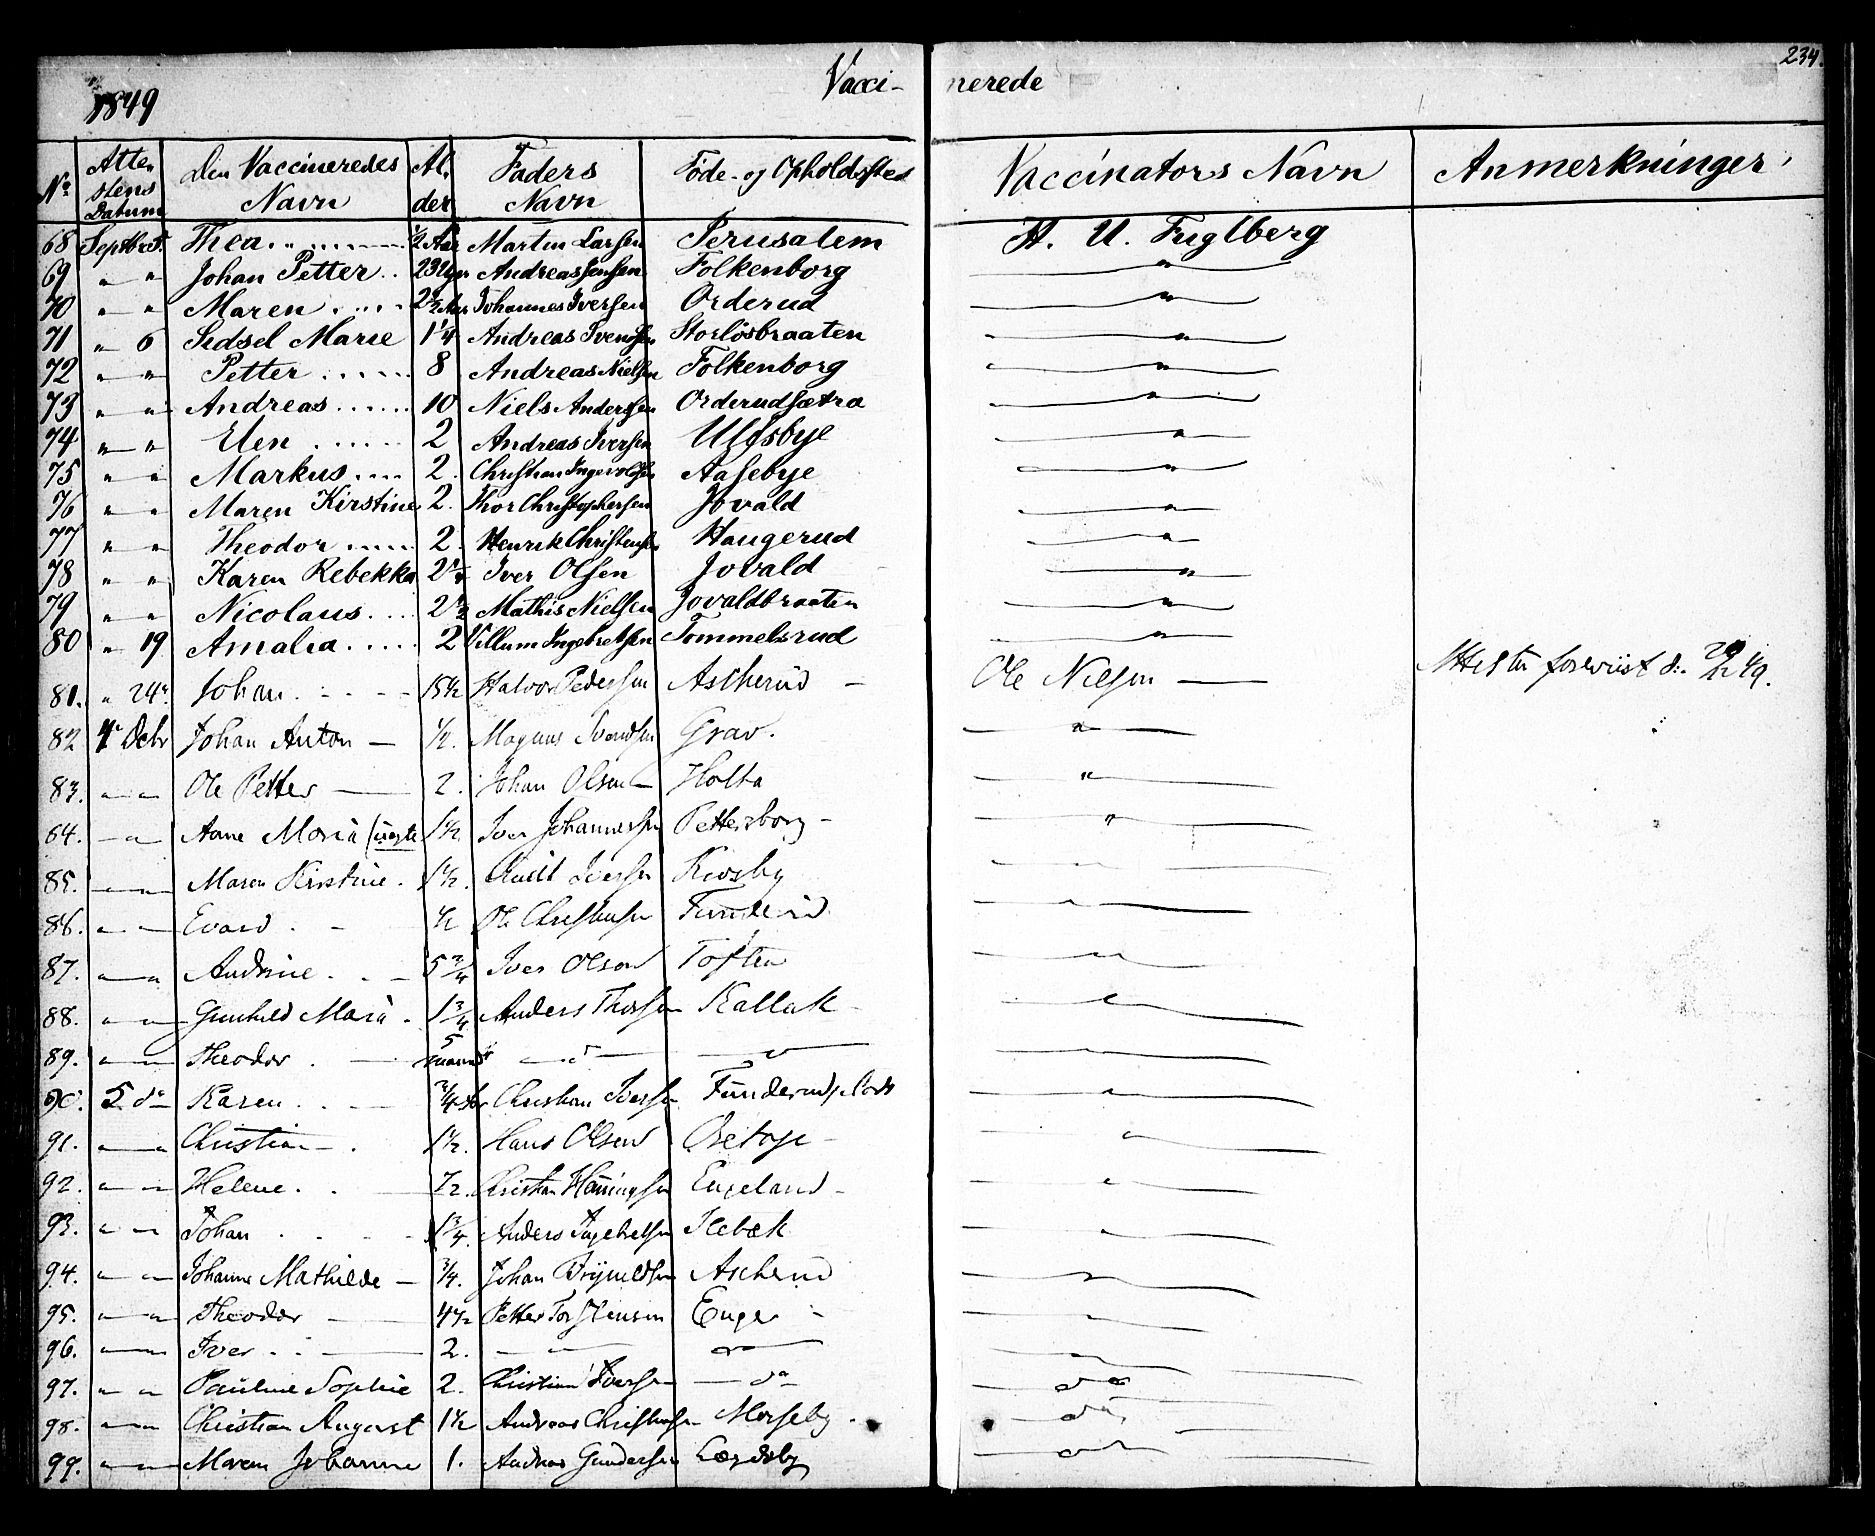 234.
1849 Vacci- nerede
No Attestens Datum Den Vaccineredes Navn Alder Faders Navn Føde- og Opholdssted Vaccinators Navn Anmerkninger
68 Septbr 5. Thea ½ Aar Martin Larssen Jerusalem H. U. Fuglberg
69 " " Johan Petter Andreas Jenssen Folkenborg "
70 " " Maren 2½ Aar Johannes Iverssen Orderud "
71 " 6 Sidsel Marie 1¼ Andreas Svendsen Storlösbraaten "
72 " " Petter 8 Andreas Nielsen Folkenborg "
73 " " Andreas 10 Niels Anderssen Orderudsætra "
74 " " Elen 2 Andreas Iverssen Ulfsbye "
75 " " Markus 2. Christian Ingevoldsen Aasebye "
76 " " Maren Kirstine 2. Thor Christophersen Jovald "
77 " " Theodor 2. Henrik Christensen Haugerud "
78 " " Karen Rebekka 2½ Iver Olsen Jovald "
79 " " Nicolaus 2½ Mathis Nielsen Jovaldbraaten "
80 " 19 Amalia 2 Villum Ingebretsen Tommelsrud "
81. " 24de Johan 15½ Halvor Pedersen Ascherud Ole Nelsen Attesten foreviist d.
82 4de Decbr Johan Anton ½. Magnus Svendsen Grav. "
83. " " Ole Petter 2. Johan Olsen Holta "
84. " Anne Maria (uægte 1½ Iver Johannessen Pettersborg "
85. " " Maren Kirstine 1½. Knudt Iversen "
86. " " Evard ½ Ole Christensen Funderud "
87. " " Andrine 5¾ Iver Olsen Toften "
88. " " Gunhild Maria 1¾ Anders Thorsen Kallak "
89. " " Theodor 5 maand " " "
90. 5 do Karen ¾ Aar Christian Iversen Funderudplads "
91. " " Christian 1½. Hans Olsen "
92. " " Helene ½. Christian Henningsen Engeland "
93. " " Johan 1¾. Anders Ingebretsen Ilebæk "
94. " " Johanne Mathilde ¾. Johan Brynildsen Ascherud "
95. " " Theodor 4½ Petter Torstensen Enger "
96. " " Iver 2. " " "
97. " " Pauline Sophie 2. Christian Iversen do do
98. " " Christian August 1½ Andreas Christensen Morseby do
99. " " Maren Johanne 1. Andreas Gundersen do